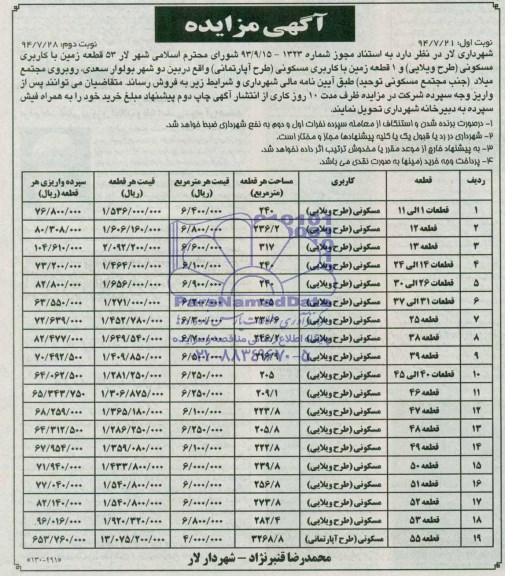 آگهی مزایده
نوبت اول: ۹۴/۷/۲۱
نوبت دوم: ۹۴/۷/۲۸
شهرداری لار در نظر دارد به استناد مجوز شماره ۱۳۲۳ - ۹۳/۹/۱۵ شورای محترم اسلامی شهر لار ۵۳ قطعه زمین با کاربری
مسکونی (طرح ویلایی) و ۱ قطعه زمین با کاربری مسکونی (طرح آپارتمانی) واقع دربین دو شهر بولوار سعدی، روبروی مجتمع
میلاد (جنب مجتمع مسکونی توحید) طبق آیین نامه مالی شهرداری و شرایط زیر به فروش رساند. متقاضیان می توانند پس از
واریز وجه سپرده شرکت در مزایده ظرف مدت ۱۰ روز کاری از انتشار آگهی چاپ دوم پیشنهاد مبلغ خرید خود را به همراه فیش
سپرده به دبیرخانه شهرداری تحویل نمایند.
۱- درصورت برنده شدن و استنکاف از معامله سپرده نفرات اول و دوم به نفع شهرداری ضبط خواهد شد.
۲- شهرداری در رد یا قبول یک یا کلیه پیشنهادها مجاز و مختار است.
۳- به پیشنهاد خارج از موعد مقرر یا مخدوش ترتیب اثر داده نخواهد شد.
۴- پرداخت وجه خرید زمینها به صورت نقدی می باشد.
ردیف قطعه کاربری مساحت هر قطعه (مترمربع) قیمت هر مترمربع (ریال) قیمت هر قطعه (ریال) سپرده واریزی هر قطعه (ریال)
۱ قطعات ۱ الی ۱۱ مسکونی (طرح ویلایی) ۲۴۰ ۶/۴۰۰/۰۰۰ ۱/۵۳۶/۰۰۰/۰۰۰ ۷۶/۸۰۰/۰۰۰
۲ قطعه ۱۲ مسکونی (طرح ویلایی) ۲۳۶/۲ ۶/۸۰۰/۰۰۰ ۱/۶۰۶/۱۶۰/۰۰۰ ۸۰/۳۰۸/۰۰۰
۳ قطعه ۱۳ مسکونی (طرح ویلایی) ۳۱۷ ۶/۶۰۰/۰۰۰ ۲/۰۹۲/۲۰۰/۰۰۰ ۱۰۴/۶۱۰/۰۰۰
۴ قطعات ۱۴ الی ۲۴ مسکونی (طرح ویلایی) ۲۴۰ ۶/۱۰۰/۰۰۰ ۱/۴۶۴/۰۰۰/۰۰۰ ۷۳/۲۰۰/۰۰۰
۵ قطعات ۲۶ الی ۳۰ مسکونی (طرح ویلایی) ۲۴۰ ۶/۹۰۰/۰۰۰ ۱/۶۵۶/۰۰۰/۰۰۰ ۸۲/۸۰۰/۰۰۰
۶ قطعات ۳۱ الی ۳۷ مسکونی (طرح ویلایی) ۲۰۵ ۶/۲۰۰/۰۰۰ ۱/۲۷۱/۰۰۰/۰۰۰ ۶۳/۵۵۰/۰۰۰
۷ قطعه ۲۵ مسکونی (طرح ویلایی) ۱/۴۵۲/۷۸۰/۰۰۰ ۷۲/۶۳۹/۰۰۰
۸ قطعه ۳۸ مسکونی (طرح ویلایی) ۲۴۶/۲ ۶/۷۰۰/۰۰۰ ۱/۶۴۹/۵۴۰/۰۰۰ ۸۲/۴۷۷/۰۰۰
۹ قطعه ۳۹ مسکونی (طرح ویلایی) ۱/۴۰۹/۸۵۰/۰۰۰ ۷۰/۴۹۲/۵۰۰
۱۰ قطعات ۴۰ الی ۴۵ مسکونی (طرح ویلایی) ۲۰۵ ۶/۲۵۰/۰۰۰ ۱/۲۸۱/۲۵۰/۰۰۰ ۶۴/۰۶۲/۵۰۰
۱۱ قطعه ۴۶ مسکونی (طرح ویلایی) ۲۰۹/۱ ۶/۲۵۰/۰۰۰ ۱/۳۰۶/۸۷۵/۰۰۰ ۶۵/۳۴۳/۷۵۰
۱۲ قطعه ۴۷ مسکونی (طرح ویلایی) ۲۲۳/۸ ۶/۱۰۰/۰۰۰ ۱/۳۶۵/۱۸۰/۰۰۰ ۶۸/۲۵۹/۰۰۰
۱۳ قطعه ۴۸ مسکونی (طرح ویلایی) ۲۰۵/۸ ۶/۲۵۰/۰۰۰ ۱/۲۸۶/۲۵۰/۰۰۰ ۶۴/۳۱۲/۵۰۰
۱۴ قطعه ۴۹ مسکونی (طرح ویلایی) ۲۲۲/۸ ۶/۱۰۰/۰۰۰ ۱/۳۵۹/۰۸۰/۰۰۰ ۶۷/۹۵۴/۰۰۰
۱۵ قطعه ۵۰ مسکونی (طرح ویلایی) ۲۳۹/۸ ۶/۰۰۰/۰۰۰ ۱/۴۳۳/۸۰۰/۰۰۰ ۷۱/۹۴۰/۰۰۰
۱۶ قطعه ۵۱ مسکونی (طرح ویلایی) ۲۵۶/۸ ۶/۰۰۰/۰۰۰ ۱/۵۴۰/۸۰۰/۰۰۰ ۷۷/۰۴۰/۰۰۰
۱۷ قطعه ۵۲ مسکونی (طرح ویلایی) ۲۷۳/۸ ۶/۰۰۰/۰۰۰ ۱/۵۴۰/۸۰۰/۰۰۰ ۸۲/۱۴۰/۰۰۰
۱۸ قطعه ۵۳ مسکونی (طرح ویلایی) ۲۸۲/۴ ۶/۸۰۰/۰۰۰ ۱/۹۲۰/۳۲۰/۰۰۰ ۹۶/۰۱۶/۰۰۰
۱۹ قطعه ۵۵ مسکونی (طرح آپارتمانی) ۳۲۶۸/۸ ۴/۰۰۰/۰۰۰ ۱۳/۰۷۵/۲۰۰/۰۰۰ ۶۵۳/۷۶۰/۰۰۰
محمدرضا قنبرنژاد - شهردار لار
«۱۳۰۰۴۹۱»